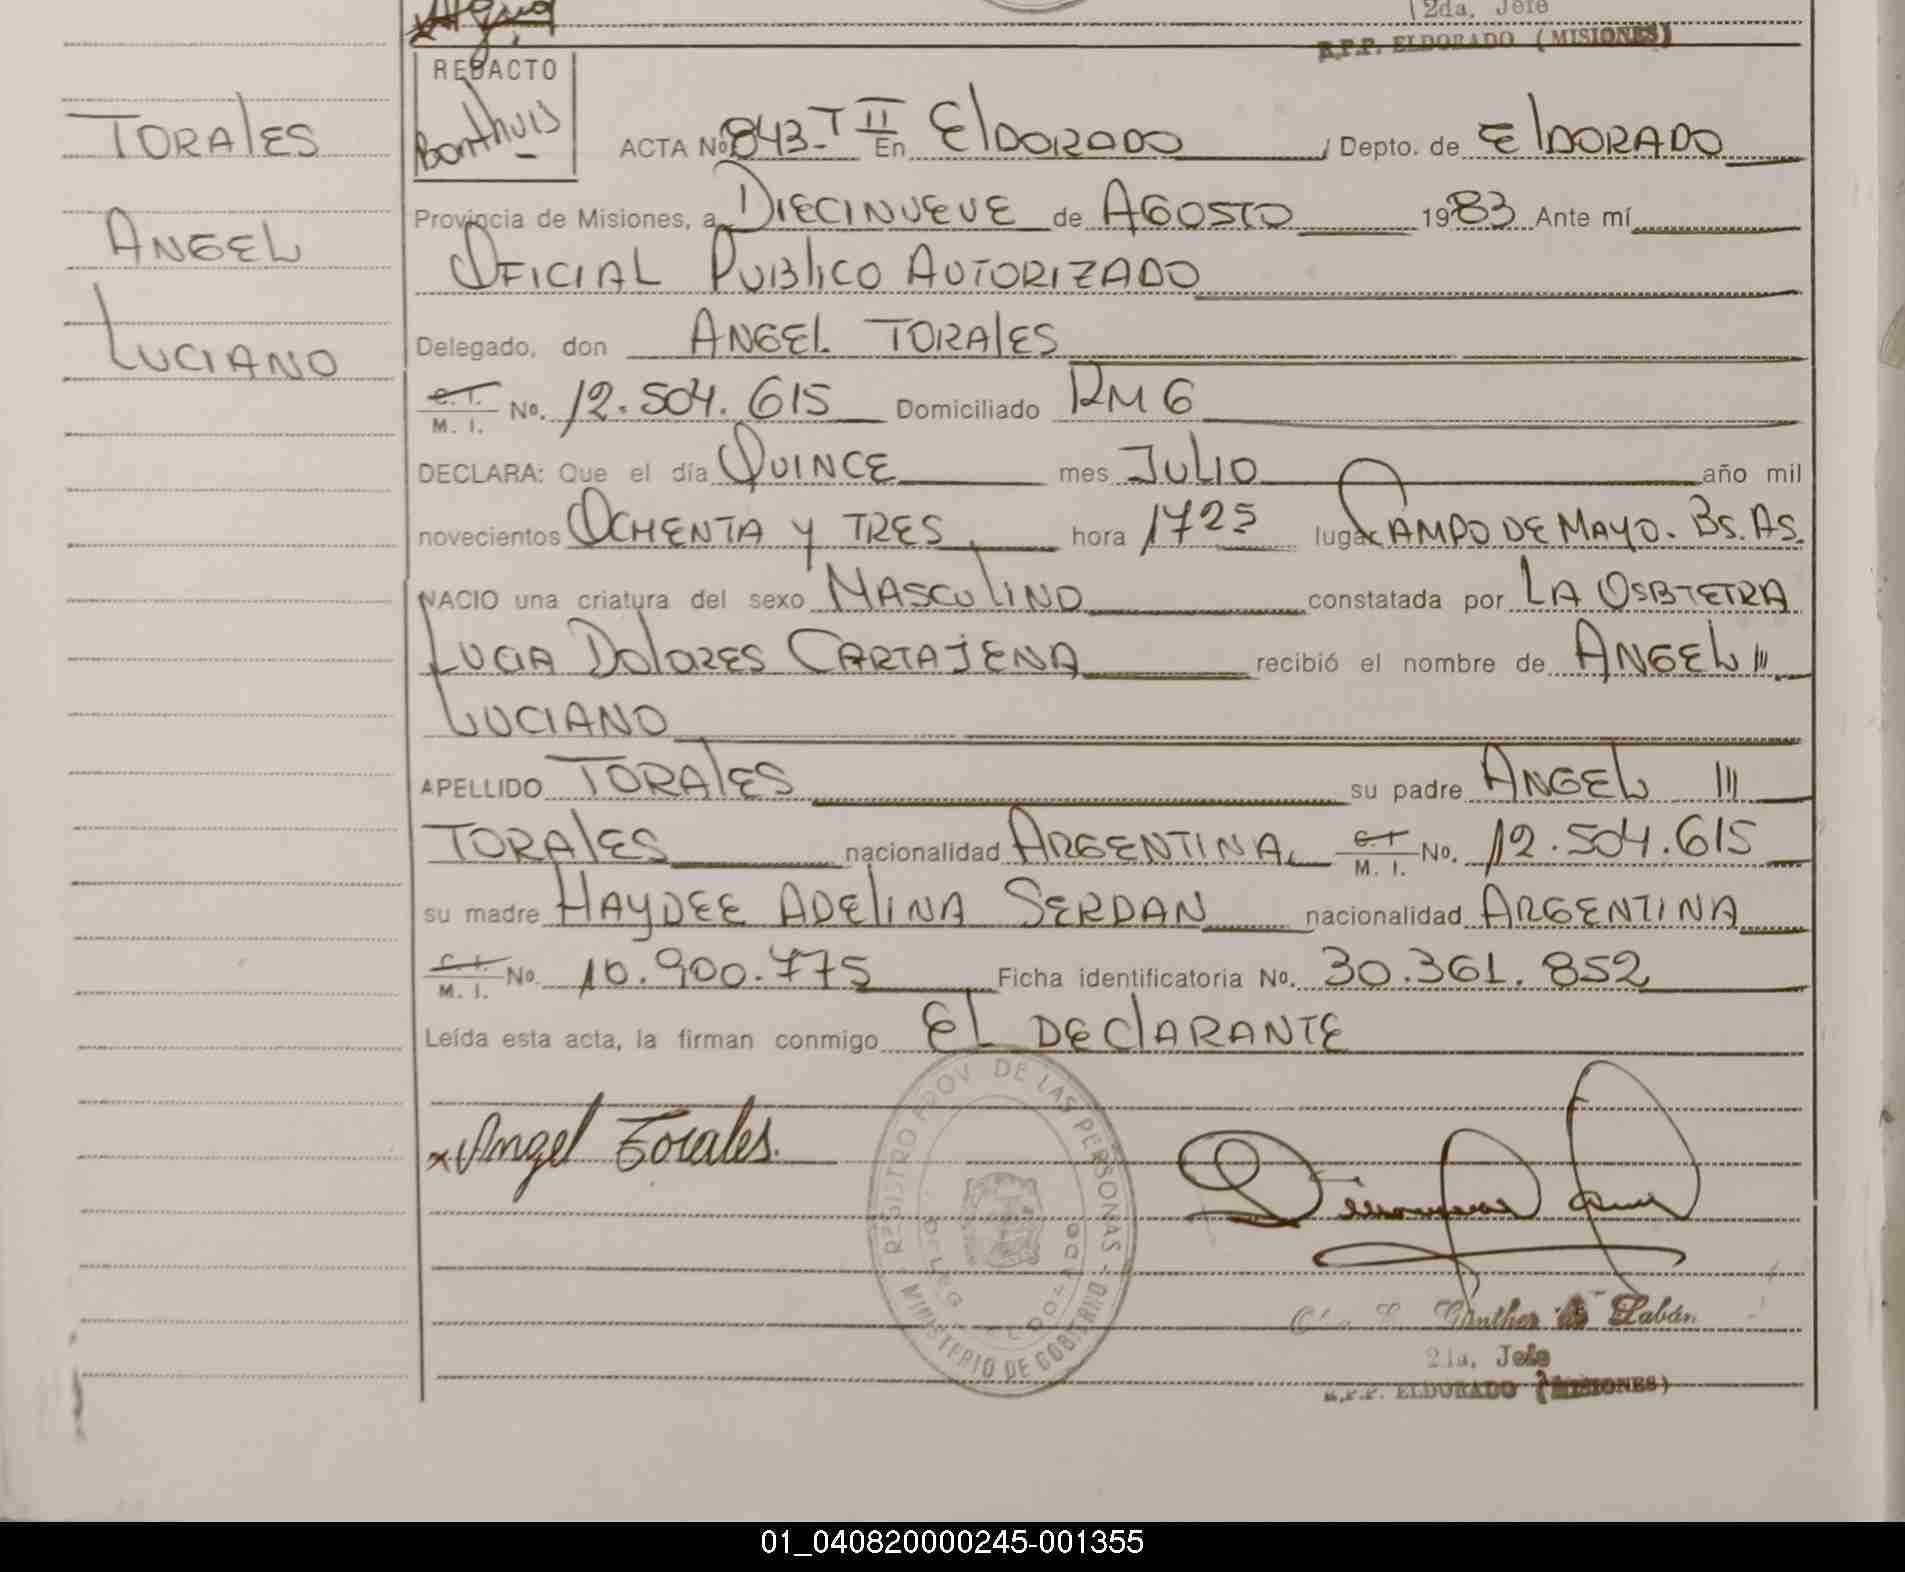 2da. Jefe
R.P.P. ELDORADO (MISIONES)
REDACTO
Bonthuis
TORALES
ANGEL
LUCIANO
ACTA No. 843-T II En ELDORADO Depto. de ELDORADO
Provincia de Misiones, a DIECINUEVE de AGOSTO 1983 Ante mí
OFICIAL PUBLICO AUTORIZADO
Delegado, don ANGEL TORALES
C. I.
M. I. No. 12.504.615 Domiciliado RM 6
DECLARA: Que el día QUINCE mes JULIO año mil
novecientos OCHENTA Y TRES hora 1725 lugar CAMPO DE MAYO. BS. AS.
NACIO una criatura del sexo MASCULINO constatada por LA OSBTETRA
LUCIA DOLORES CARTAJENA recibió el nombre de ANGEL
LUCIANO
APELLIDO TORALES su padre ANGEL
TORALES nacionalidad ARGENTINA C. I.
M. I. No. 12.504.615
su madre HAYDEE ADELINA SERDAN nacionalidad ARGENTINA
C. I.
M. I. No. 10.900.775 Ficha identificatoria No. 30.361.852
Leída esta acta, la firman conmigo EL DECLARANTE
x Angel Torales.
REGISTRO PROV. DE LAS PERSONAS - MINISTERIO DE GOBIERNO
ELDORADO
Günther de Labán
2da. Jefe
R.P.P. ELDORADO (MISIONES)
01_040820000245-001355